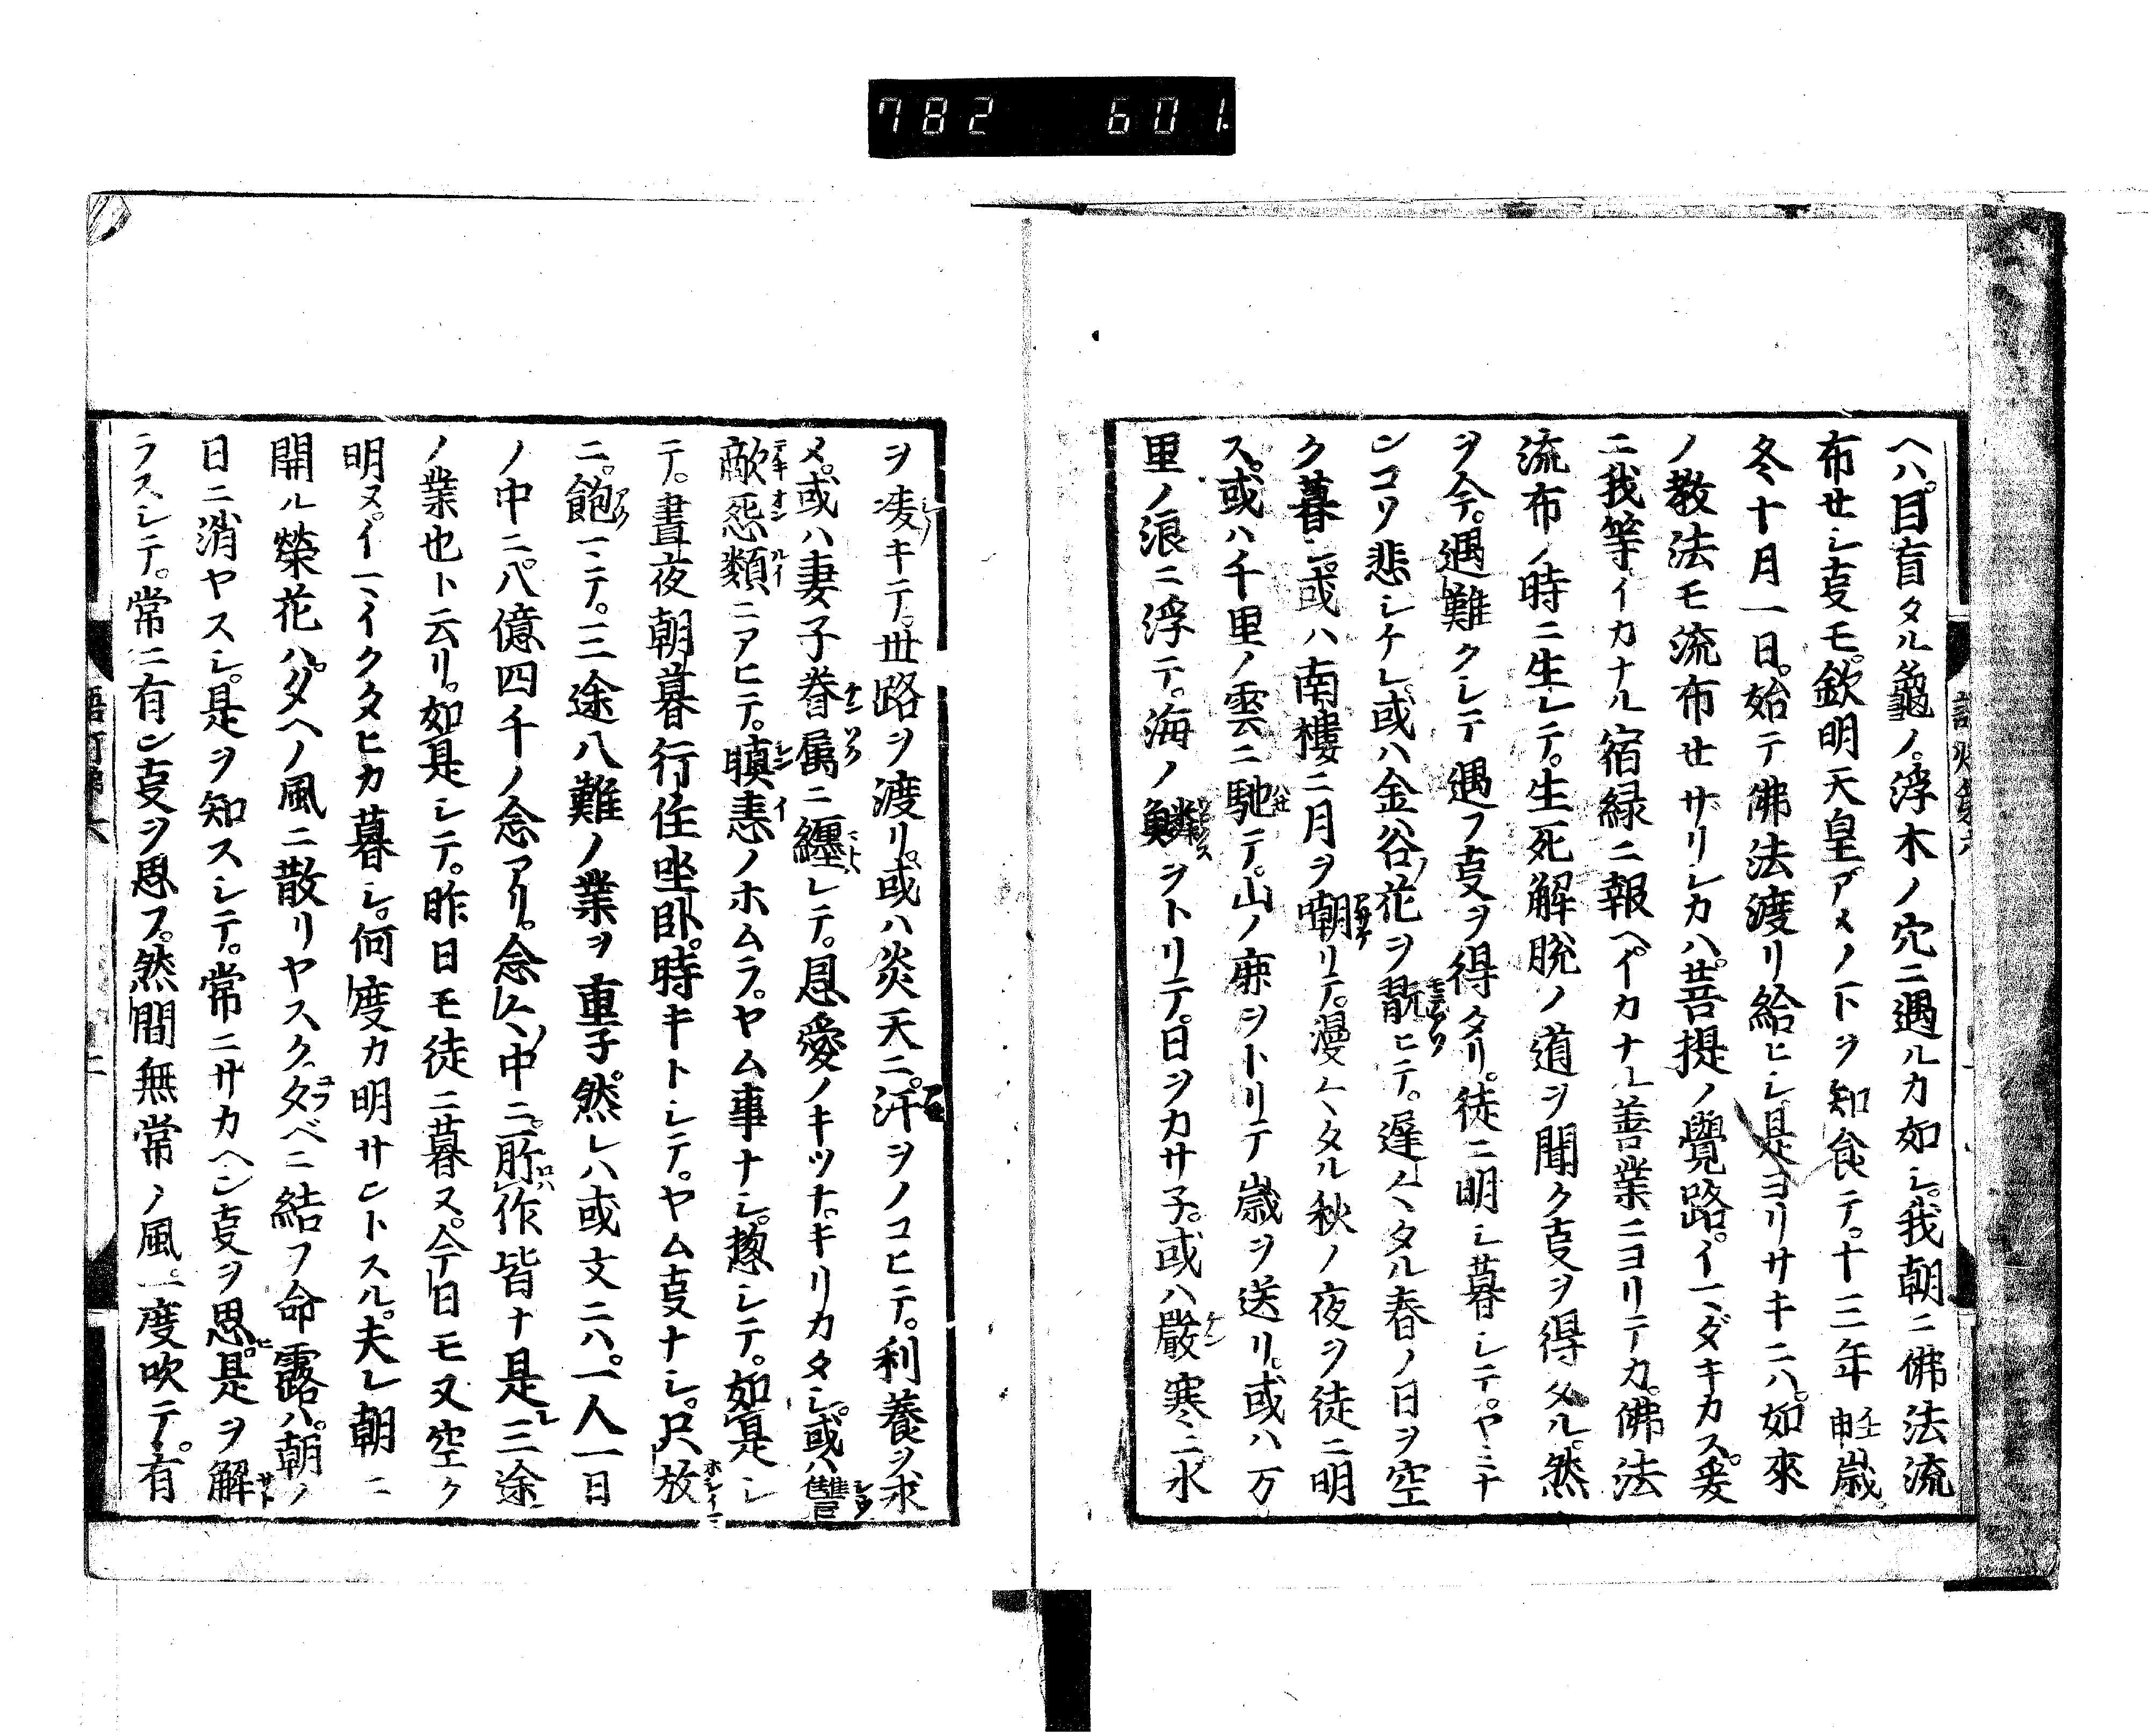 782 601
ヘハ。目盲タル龜ノ。浮木ノ穴ニ遇ルカ如シ。我朝ニ佛法流
布セシ㕝モ。欽明天皇アメノトヲ知食テ。十三年壬申歳
冬十月一日。始テ佛法渡リ給ヒシ是ヨリサキニハ。如來
ノ教法モ流布セサリシカハ。菩提ノ覺路。イマダキカス。爰
ニ我等イカナル宿緑ニ報ヘ。イカナル善業ニヨリテカ。佛法
流布ノ時ニ生レテ。生死解脱ノ道ヲ聞ク㕝ヲ得タル。然
ヲ今。遇難クシテ遇フ㕝ヲ得タリ。徒ニ明シ暮シテ。ヤミナ
ンコソ悲シケレ。或ハ金谷ノ花ヲ翫ヒテ。遲〱タル春ノ日ヲ空
ク暮シ。或ハ南樓ニ月ヲ嘲リテ。漫〱タル秋ノ夜ヲ徒ニ明
ス。或ハ千里ノ雲ニ馳テ。山ノ鹿ヲトリテ歳ヲ送リ。或ハ万
里ノ浪ニ浮テ。海ノ鱗ヲトリテ。日ヲカサ子。或ハ嚴寒ニ氷
ヲ凌キテ。世路ヲ渡リ。或ハ炎天ニ。汗ヲノコヒテ。利養ヲ求
メ。或ハ妻子眷属ニ纒レテ。恩愛ノキツナ。キリカタシ。或ハ讐
敵怨類ニアヒテ。瞋恚ノホムラ。ヤム事ナシ。惣シテ。如是シ
テ。晝夜朝暮行住坐卧。時キトシテ。ヤム㕝ナシ。只放
ニ。飽マテ。三途八難ノ業ヲ重子。然レハ或文ニハ。一人一日
ノ中ニ。八億四千ノ念アリ。念〱ノ中ニ。所作皆ナ是レ三途
ノ業也ト云リ。如是シテ。昨日モ徒ニ暮ヌ。今日モ又空ク
明ヌ。イマイクタヒカ暮シ。何度カ明サントスル。夫レ朝ニ
開ル榮花ハ。夕ヘノ風ニ散リヤスク。夕ベニ結フ命露ハ。朝ノ
日ニ消ヤスシ。是ヲ知スシテ。常ニサカヘン㕝ヲ思ヒ。是ヲ解
ラスシテ。常ニ有ン㕝ヲ思フ。然間無常ノ風。一度吹テ。有